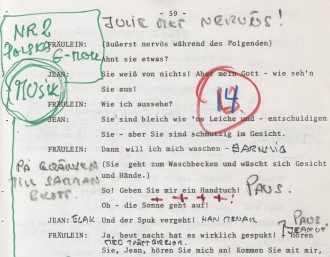 - 59 -
JULIE MKT NERVÖS!
NR 2
POLSKA
G-MOLL
MUSIK
FRÄULEIN: (äußerst nervös während des Folgenden)
Ahnt sie etwas?
JEAN: Sie weiß von nichts! Aber mein Gott - wie seh'n
Sie aus!
FRÄULEIN: Wie ich aussehe?
14
JEAN: Sie sind bleich wie 'ne Leiche und - entschuldigen
Sie - aber Sie sind schmutzig im Gesicht.
FRÄULEIN: Dann will ich mich waschen -
(Sie geht zum Waschbecken und wäscht sich Gesicht
und Hände.)
PÅ GRÄNSEN
TILL
So! Geben Sie mir ein Handtuch! PAUS.
Oh - die Sonne geht auf!
JEAN: Und der Spuk vergeht!
PAUS
FRÄULEIN: Ja, heut nacht hat es wirklich gespukt! - Hören
Sie, Jean, hören Sie mich an! Kommen Sie mit mir,